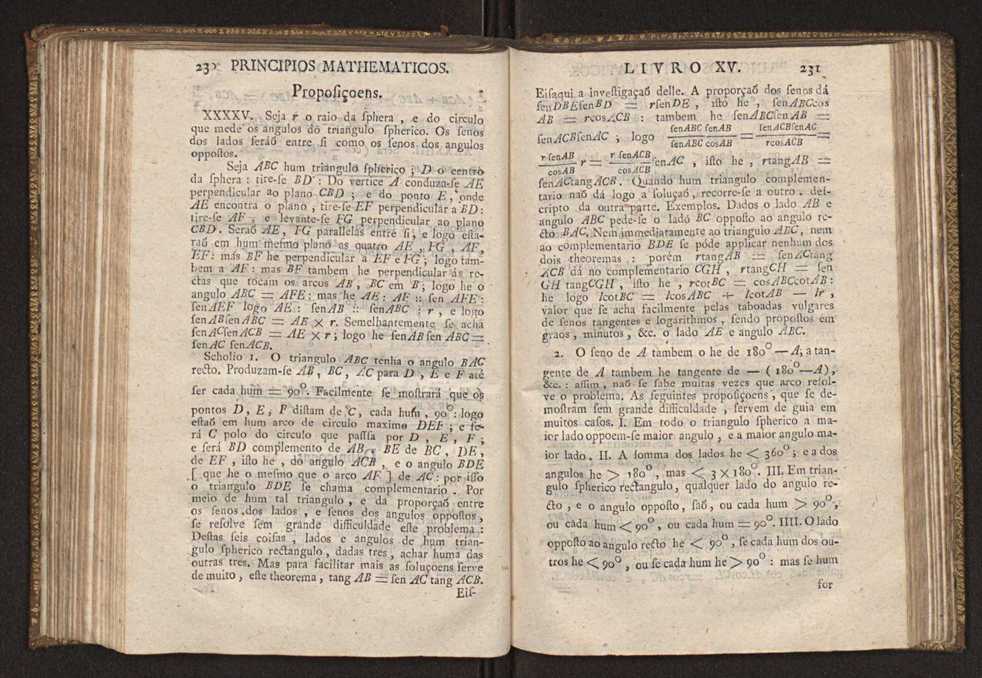 23× PRINCIPIOS MATHEMATICOS.
Propoſiçoens.
XXXXV. Seja r o raio da ſphera , e do circulo
que mede os angulos do triangulo ſpherico. Os ſenos
dos lados ſeráõ entre ſi como os ſenos dos angulos
oppoſtos.
Seja ABC hum triangulo ſpherico ; D o centro
da ſphera : tire-ſe BD : Do vertice A conduza-ſe AE
perpendicular ao plano CBD ; e do ponto E , onde
AE encontra o plano , tire-ſe EF perpendicular a BD :
tire-ſe AF ; e levante-ſe FG perpendicular ao plano
CBD. Seraõ AE , FG parallelas entre ſi , e logo eſta-
raõ em hum meſmo plano as quatro AE , FG , AF,
EF : más BF he perpendicular a EF e FG ; logo tam-
bem a AF : mas BF tambem he perpendicular ás re-
ctas que tocam os arcos AB , BC em B ; logo he o
angulo ABC = AFE : mas he AE : AF :: ſen AFE :
ſenAEF logo AE : ſenAB :: ſenABC : r , e logo
ſenABſenABC = AE × r. Semelhantemente ſe acha
ſenACſenACB = AE × r ; logo he ſenAB ſen ABC =
ſenAC ſenACB.
Scholio 1. O triangulo ABC tenha o angulo BAC
recto. Produzam-ſe AB , BC , AC para D , E e F até
ſer cada hum = 90°. Facilmente ſe moſtrará que os
pontos D, E, F diſtam de C, cada hum , 90° : logo
eſtaõ em hum arco de circulo maximo DEF ; e ſe-
rá C polo do circulo que paſſſa por D , E , F ;
e ſerá BD complemento de AB , BE de BC , DE,
de EF , iſto he , do angulo ACB , e o angulo BDE
[ que he o meſmo que o arco AF ] de AC : por iſſo
o triangulo BDE ſe chama complementario . Por
meio de hum tal triangulo , e da proporçaõ entre
os ſenos dos lados , e ſenos dos angulos oppoſtos,
ſe reſolve ſem grande difficuldade eſte problema :
Deſtas ſeis coiſas , lados e angulos de hum trian-
gulo ſpherico rectangulo , dadas tres , achar huma das
outras tres. Mas para facilitar mais as ſoluçoens ſerve
de muito , eſte theorema , tang AB = ſen AC tang ACB.
Eiſ-
LIVRO XV. 231
Eiſaqui a inveſtigaçaõ delle. A proporçaõ dos ſenos dá
ſenDBEſenBD = rſenDE , iſto he , ſenABCcos
AB = rcosACB : tambem he ſenABCſenAB =
ſenACBſenAC ; logo ſenABC ſenAB / ſenABC cosAB = ſenACBſenAC / rcosACB =
r ſenAB / cosAB r = r ſenACB / cosACB ſenAC , iſto he , rtangAB =
ſenACtangACB. Quando hum triangulo complemen-
tario naõ dá logo a ſoluçaõ , recorre-ſe a outro , deſ-
cripto da outra parte. Exemplos. Dados o lado AB e
angulo ABC pede-ſe o lado BC oppoſto ao angulo re-
cto BAC. Nem immediatamente ao triangulo ABC , nem
ao complementario BDE ſe póde applicar nenhum dos
dois theoremas : porém rtangAB = ſenACtang
ACB dá no complementario CGH , rtangCH = ſen
GH tangCGH , iſto he , rcotBC = cosABCcotAB :
he logo lcotBC = lcosABC + lcotAB — lr ,
valor que ſe acha facilmente pelas taboadas vulgares
de ſenos tangentes e logarithmos , ſendo propoſtos em
graos , minutos , &c. o lado AE e angulo ABC.
2. O ſeno de A tambem o he de 180° — A, a tan-
gente de A tambem he tangente de — ( 180° — A ),
&c. : aſſim , naõ ſe ſabe muitas vezes que arco reſol-
ve o problema. As ſeguintes propoſiçoens , que ſe de-
moſtram ſem grande difficuldade , ſervem de guia em
muitos caſos. I. Em todo o triangulo ſpherico a ma-
ior lado oppoem-ſe maior angulo , e a maior angulo ma-
ior lado. II. A ſomma dos lados he < 360° ; e a dos
angulos he > 180° , mas < 3 × 180°. III. Em trian-
gulo ſpherico rectangulo, qualquer lado do angulo re-
cto , e o angulo oppoſto , ſaõ, ou cada hum > 90°,
ou cada hum < 90° , ou cada hum = 90°. IIII. O lado
oppoſto ao angulo recto he < 90° , ſe cada hum dos ou-
tros he < 90° , ou ſe cada hum he > 90° : mas ſe hum
for